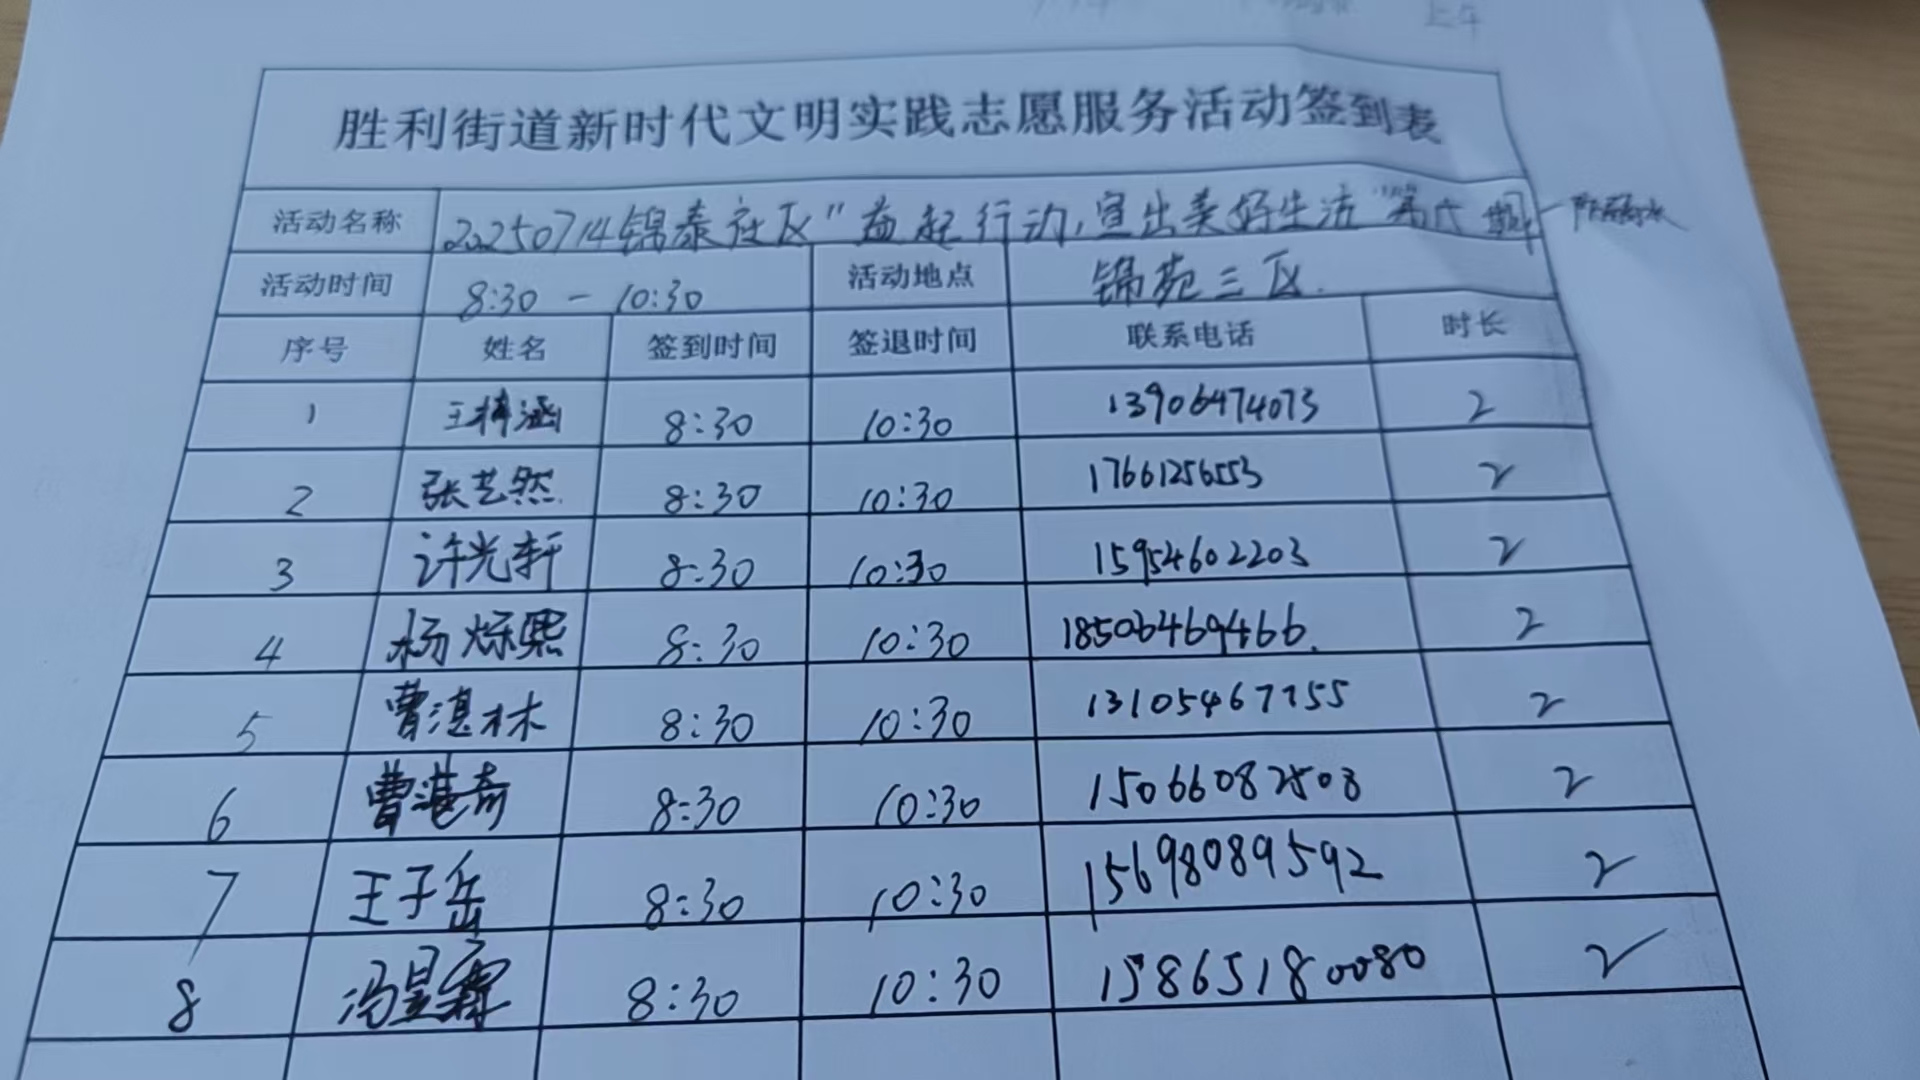 上午
胜利街道新时代文明实践志愿服务活动签到表
活动名称 20250714锦泰社区"益起行动,宜出美好生活"第六期一
活动时间 8:30 - 10:30 活动地点 锦苑三区
序号 姓名 签到时间 签退时间 联系电话 时长
1 王梓涵 8:30 10:30 13906474073 2
2 张艺然 8:30 10:30 17661256553 2
3 许光轩 8:30 10:30 15954602203 2
4 杨烁熙 8:30 10:30 18506469466. 2
5 曹湛林 8:30 10:30 13105467755 2
6 曹港奇 8:30 10:30 15066082508 2
7 王子岳 8:30 10:30 15698089592 2
8 冯昱霖 8:30 10:30 15865180080 2